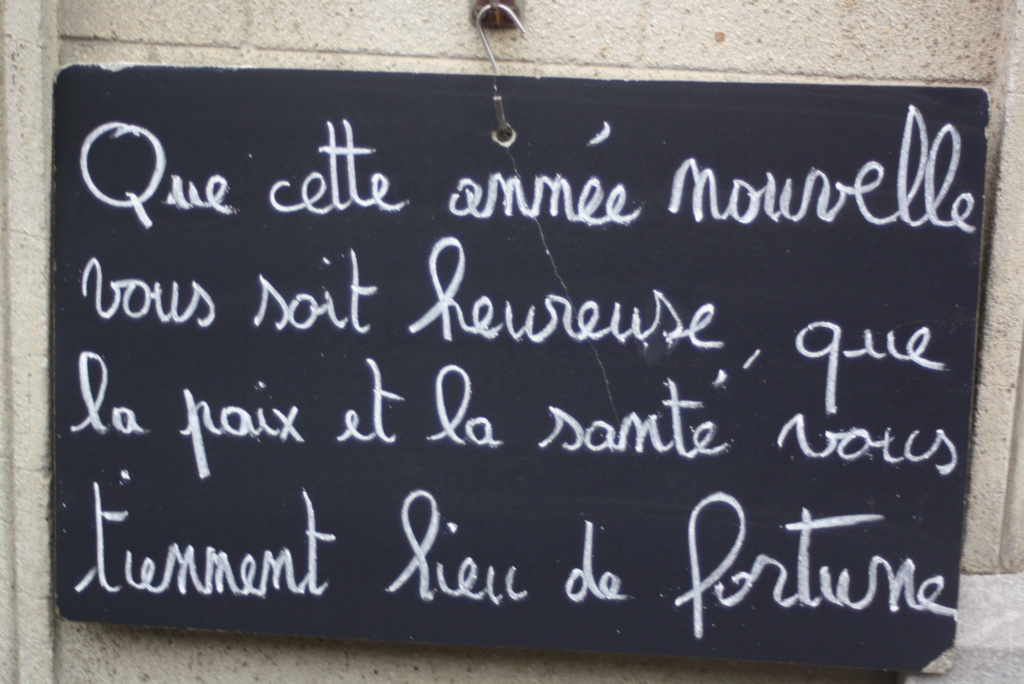 Que cette année nouvelle
vous soit heureuse, que
la paix et la santé vous
tiennent lieu de fortune